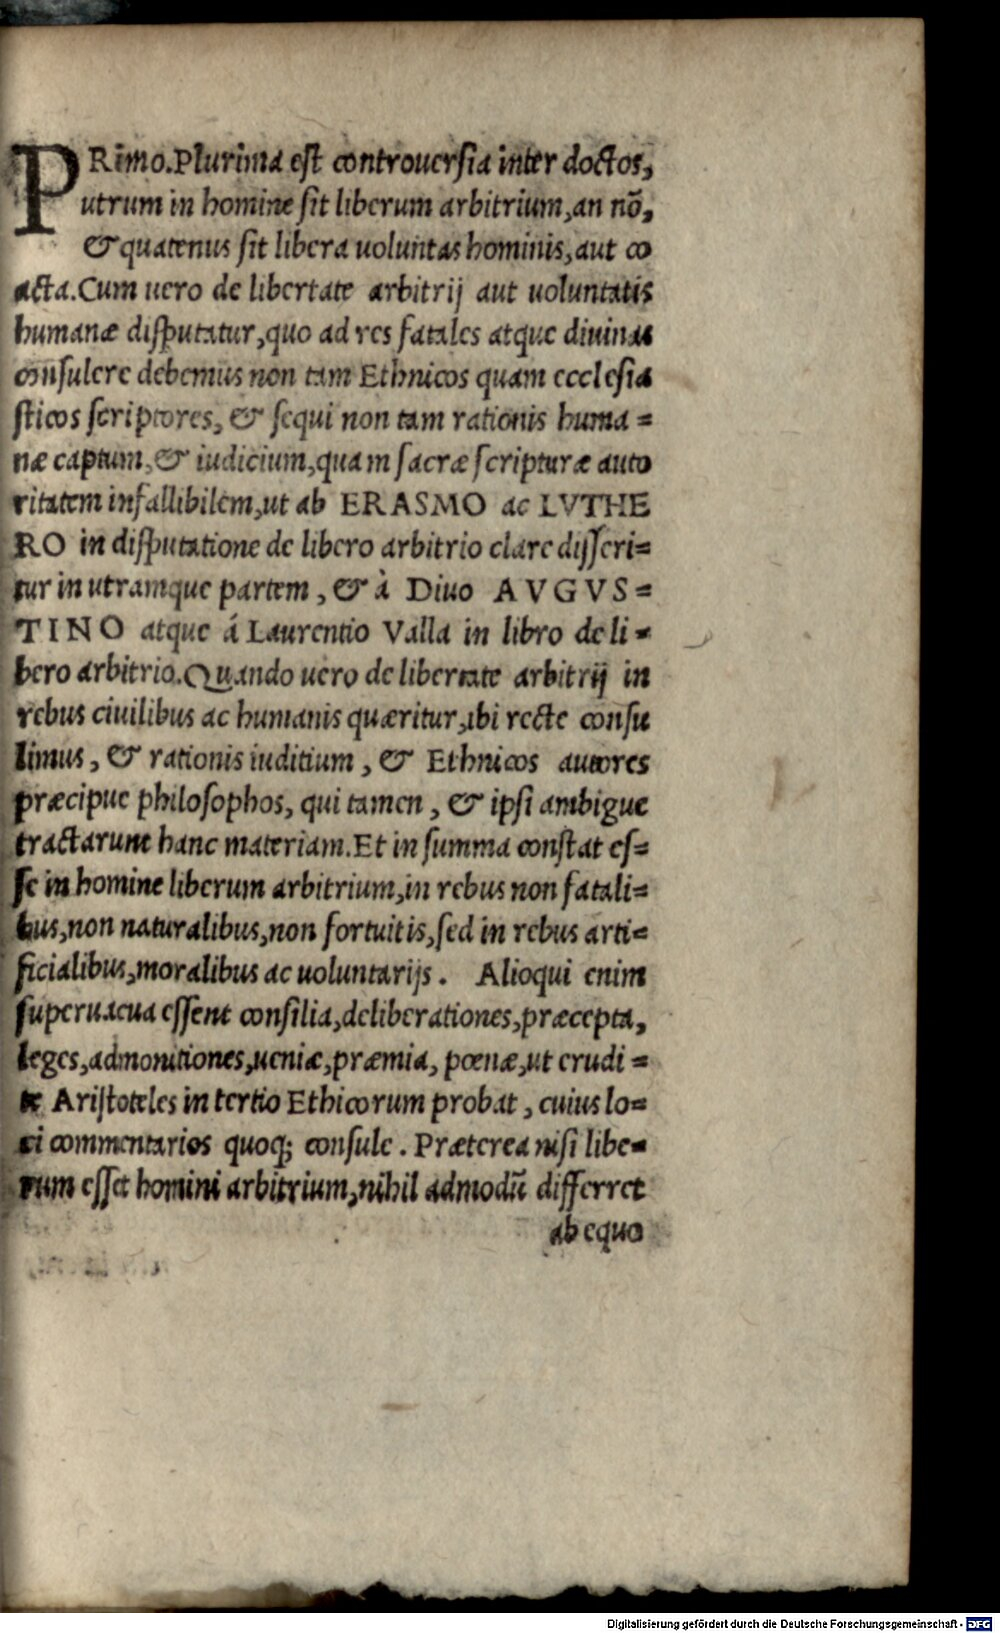 PRimo. Plurima est controuersia inter doctos,
utrum in homine sit liberum arbitrium, an nõ,
& quatenus sit libera uoluntas hominis, aut co
acta. Cum uero de libertate arbitrij aut uoluntatis
humanæ disputatur, quo ad res fatales atque diuinas
consulere debemus non tam Ethnicos quam ecclesia
sticos scriptores, & sequi non tam rationis huma=
næ captum, & iudicium, quam sacræ scripturæ auto
ritatem infallibilem, ut ab ERASMO ac LVTHE
RO in disputatione de libero arbitrio clare disseri=
tur in utramque partem, & à Diuo AVGVS=
TINO atque á Laurentio Valla in libro de li=
bero arbitrio. Quando uero de libertate arbitrij in
rebus ciuilibus ac humanis quæritur, ibi recte consu
limus, & rationis iuditium, & Ethnicos autores
præcipue philosophos, qui tamen, & ipsi ambigue
tractarunt hanc materiam. Et in summa constat es=
se in homine liberum arbitrium, in rebus non fatali=
bus, non naturalibus, non fortuitis, sed in rebus arti=
ficialibus, moralibus ac uoluntarijs. Alioqui enim
superuacua essent consilia, deliberationes, præcepta,
leges, admonitiones, ueniæ, præmia, pœnæ, ut erudi=
te Aristoteles in tertio Ethicorum probat, cuius lo=
ci commentarios quoq; consule. Præterea nisi libe=
rum esset homini arbitrium, nihil admodũ differret
ab equo
Digitalisierung gefördert durch die Deutsche Forschungsgemeinschaft - DFG